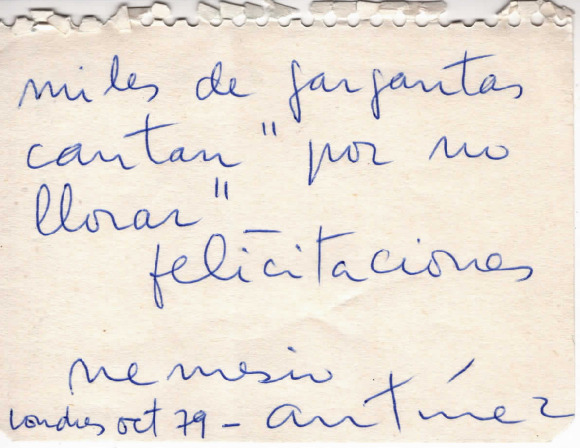 miles de gargantas
cantan "por no
llorar" –
felicitaciones
nemesio
londres oct 79 – antúnez